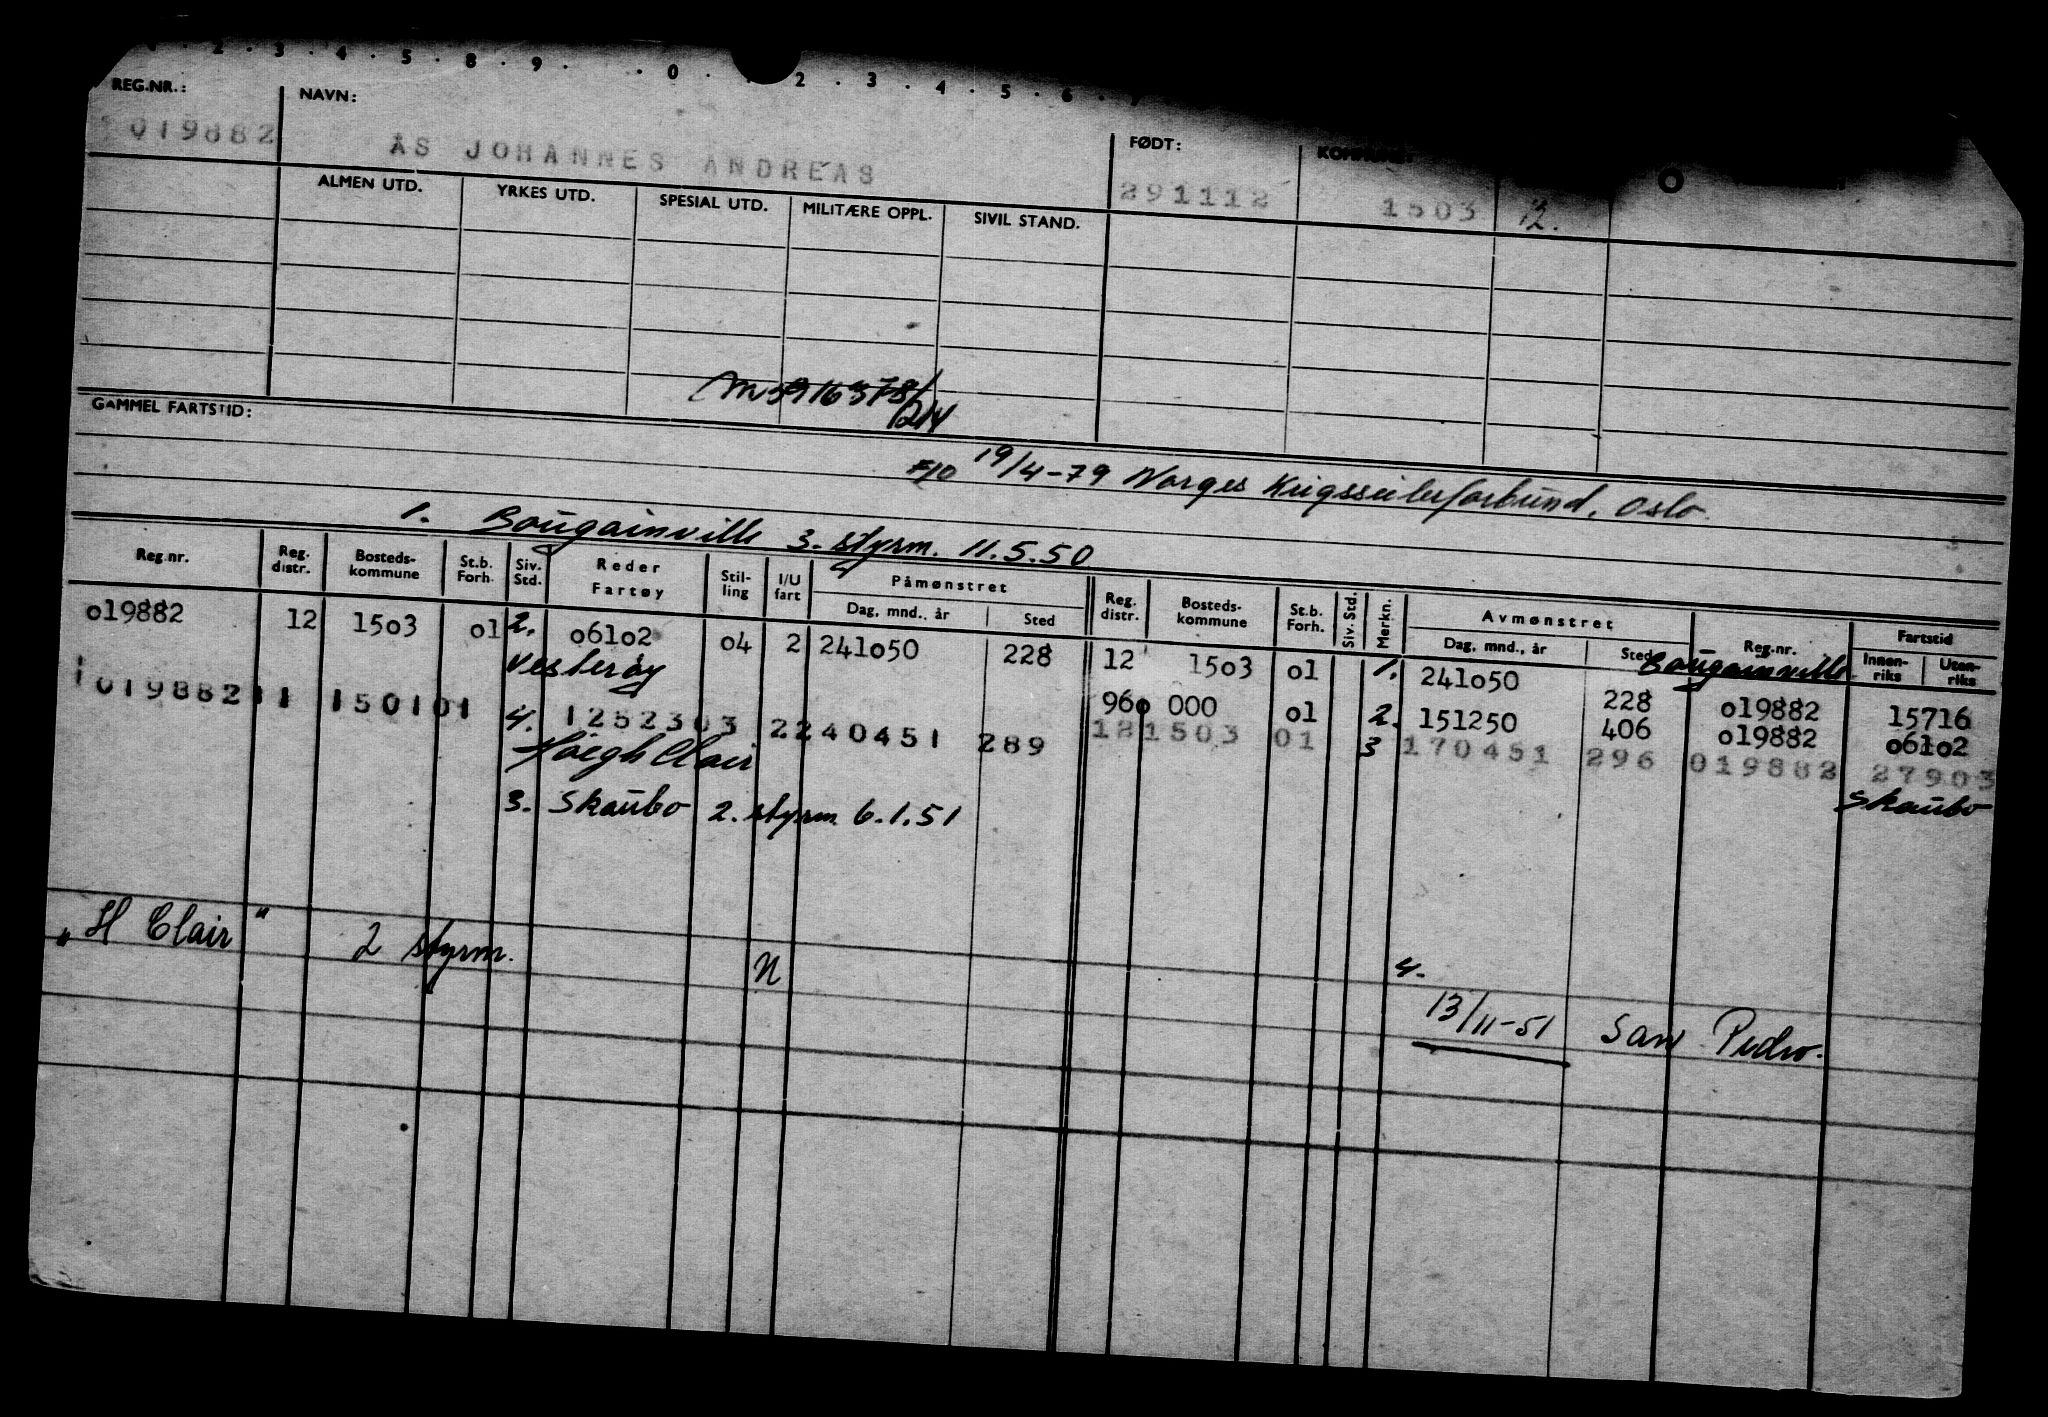 2 . 3 . 4 . 5 . 8 . 9 . . 0 . . 2 . 3 . 4 . 5 . 6 . 7
REG.NR.: NAVN: FØDT:
019882 ÅS JOHANNES ANDREAS 291112 1503 12.
ALMEN UTD. YRKES UTD. SPESIAL UTD. MILITÆRE OPPL. SIVIL STAND.
GAMMEL FARTSTID:
19/4-79 Norges Krigsseilerforbund, Oslo
1. Bougainville 3. styrm. 11.5.50
Reg.nr. Reg. distr. Bosteds-kommune St.b. Forh. Siv. Std. Reder Fartøy Stil-ling I/U fart Påmønstret Dag, mnd., år Sted Reg. distr. Bosteds-kommune St.b. Forh. Siv. Std. Merkn. Avmønstret Dag, mnd., år Sted Reg.nr. Fartstid Innen-riks Uten-riks
o19882 12 15o3 o1 2. o61o2 o4 2 241o50 228 12 15o3 o1 1. 241o50 228 o19882 15716
Vesterøy Bougainville
96o 000 o1 2. 151250 406 o19882 o61o2
1019882 11 150101 4. 1252303 2240451 289 121503 01 3 170451 296 019882 27903
Höegh Clair Skaubo
3. Skaubo 2. styrm. 6.1.51
"H Clair" 2 styrm. N 4.
13/11-51 San Pedro.